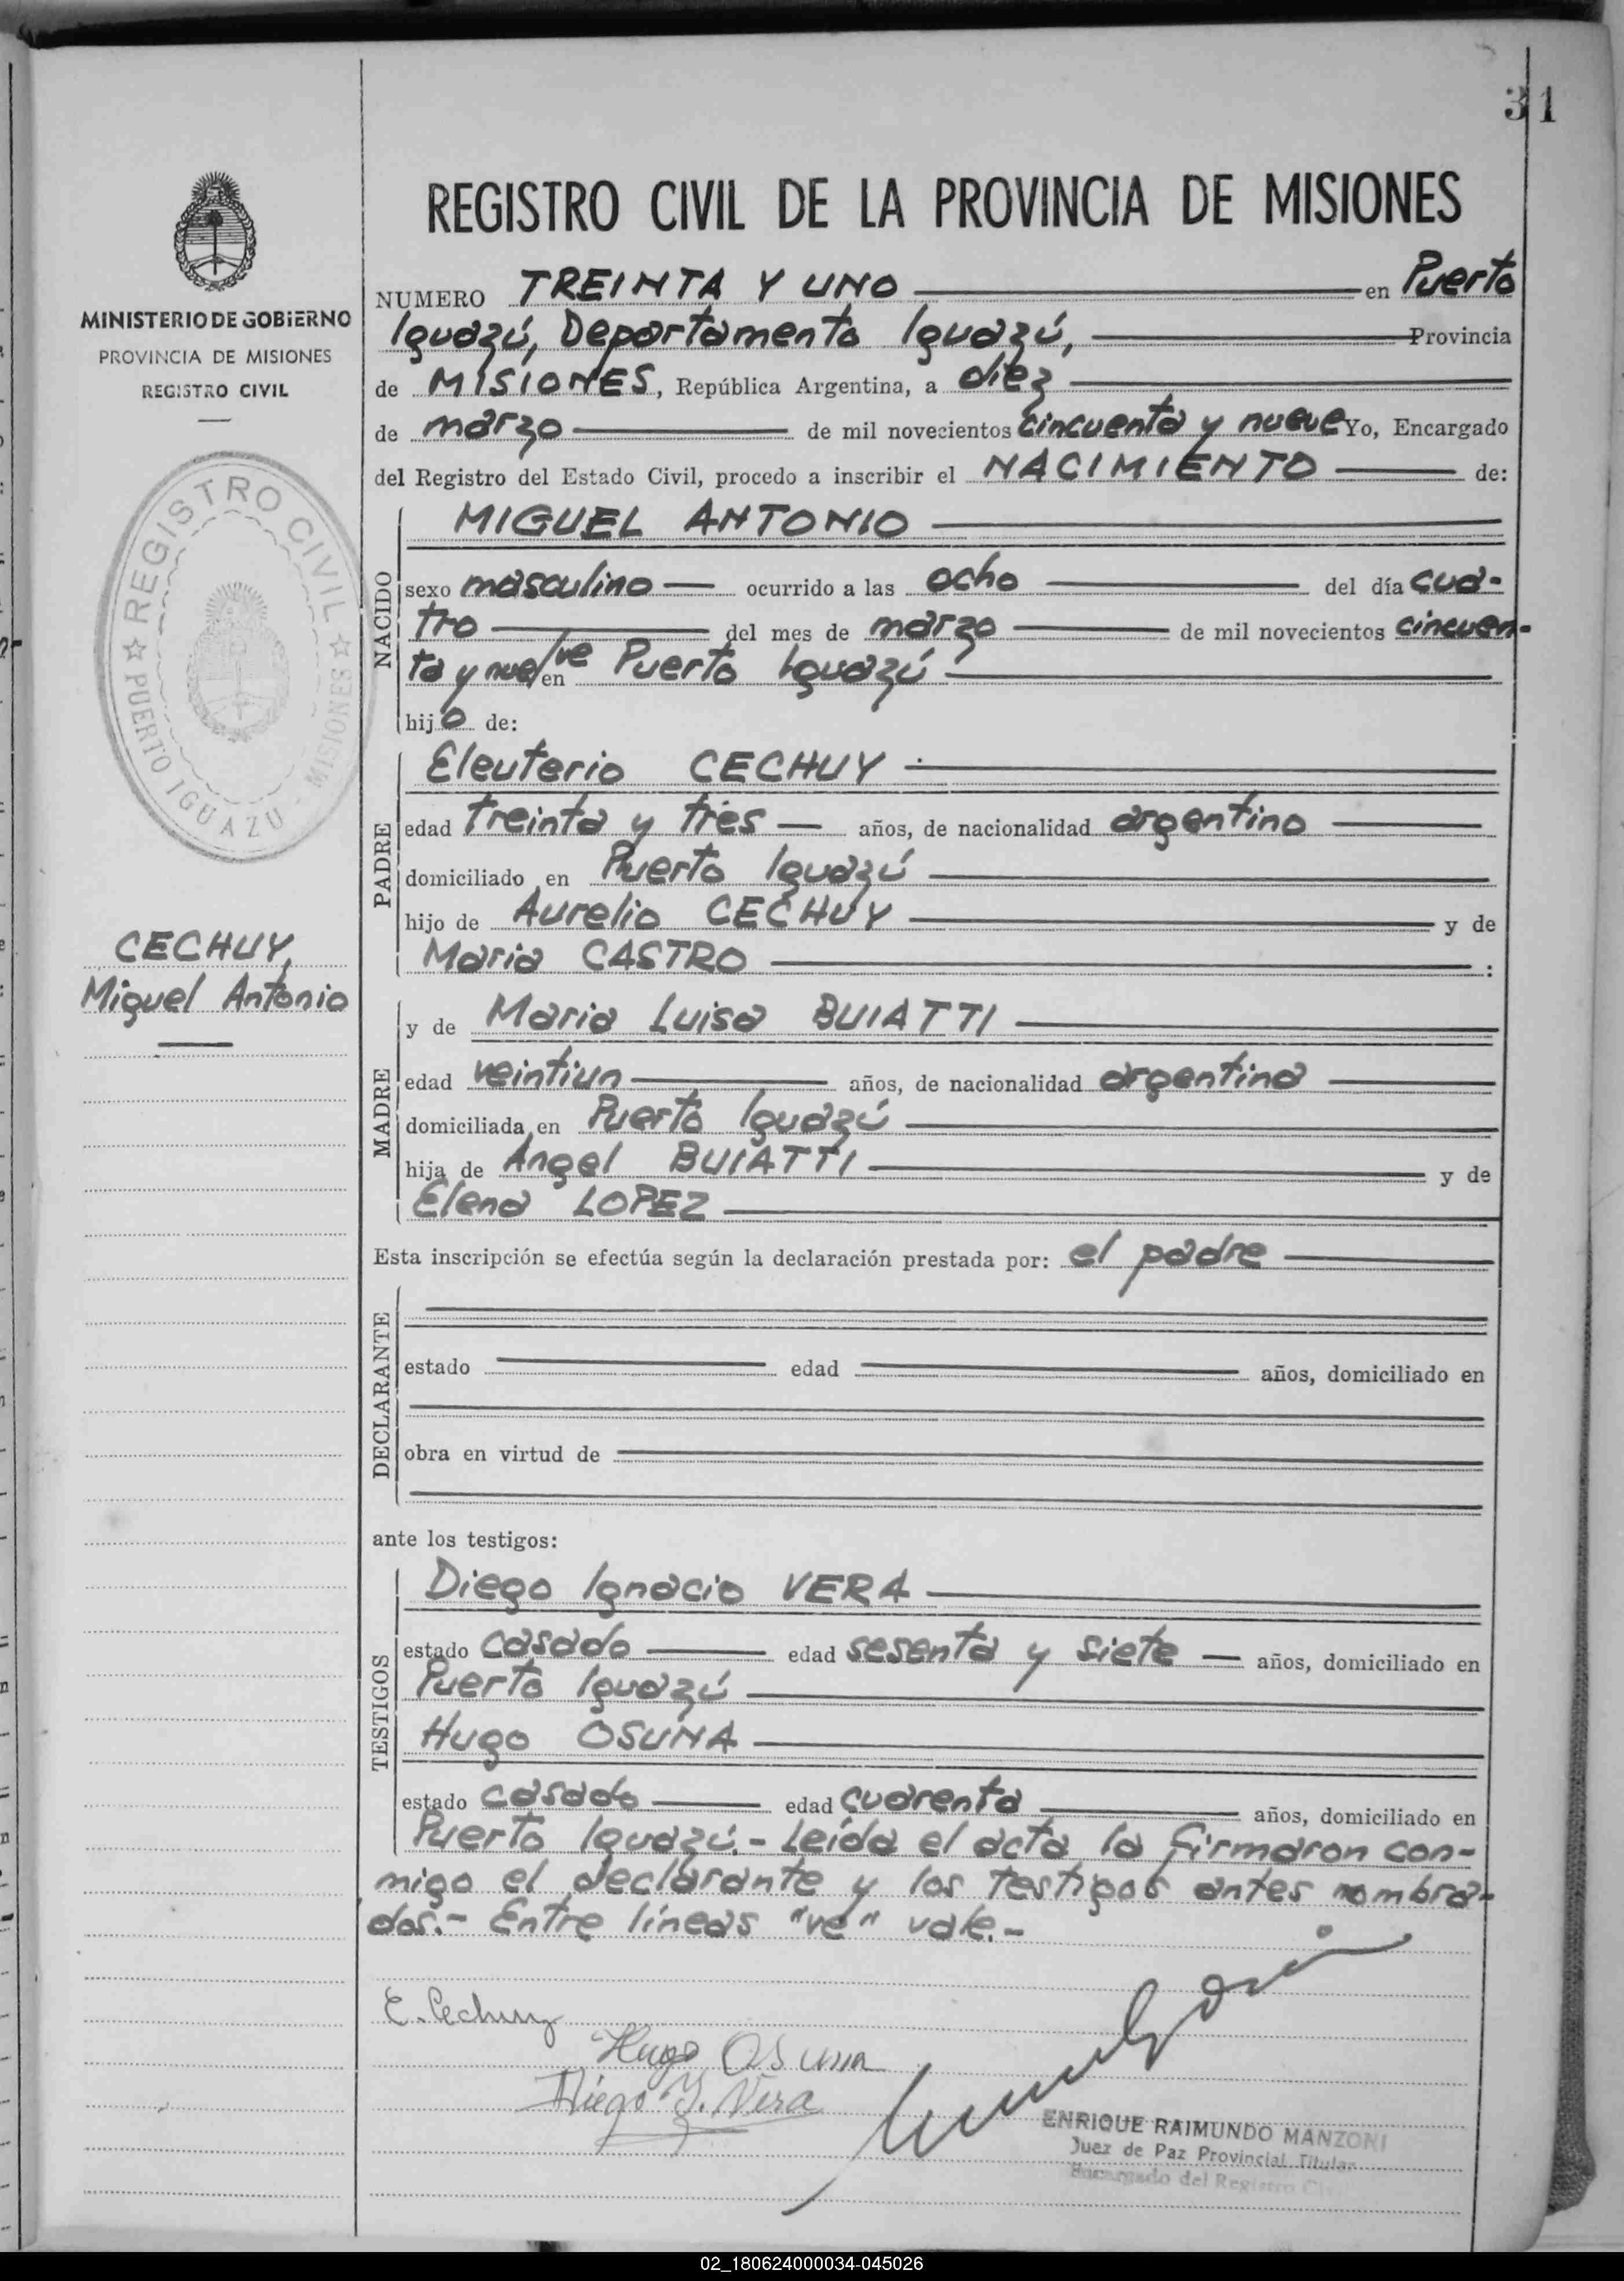 31
REGISTRO CIVIL DE LA PROVINCIA DE MISIONES
MINISTERIO DE GOBIERNO
PROVINCIA DE MISIONES
REGISTRO CIVIL
REGISTRO CIVIL
PUERTO IGUAZU - MISIONES
CECHUY,
Miguel Antonio
NUMERO TREINTA Y UNO en Puerto
Iguazú, Departamento Iguazú, Provincia
de MISIONES, República Argentina, a diez
de marzo de mil novecientos cincuenta y nueve Yo, Encargado
del Registro del Estado Civil, procedo a inscribir el NACIMIENTO de:
NACIDO
MIGUEL ANTONIO
sexo masculino ocurrido a las ocho del día cua-
tro del mes de marzo de mil novecientos cincuen-
ta y nue/ve en Puerto Iguazú
hijo de:
PADRE
Eleuterio CECHUY
edad treinta y tres años, de nacionalidad argentino
domiciliado en Puerto Iguazú
hijo de Aurelio CECHUY y de
Maria CASTRO :
MADRE
y de Maria Luisa BUIATTI
edad veintiun años, de nacionalidad argentina
domiciliada en Puerto Iguazú
hija de Angel BUIATTI y de
Elena LOPEZ
Esta inscripción se efectúa según la declaración prestada por: el padre
DECLARANTE
estado edad años, domiciliado en
obra en virtud de
ante los testigos:
TESTIGOS
Diego Ignacio VERA
estado casado edad sesenta y siete años, domiciliado en
Puerto Iguazú
Hugo OSUNA
estado casado edad cuarenta años, domiciliado en
Puerto Iguazú.- Leída el acta la firmaron con-
migo el declarante y los testigos antes nombra-
dos.- Entre líneas "ve" vale.-
E. Cechuy
Hugo Osuna
Diego I. Vera
ENRIQUE RAIMUNDO MANZONI
Juez de Paz Provincial Titular
Encargado del Registro Civil
02_180624000034-045026